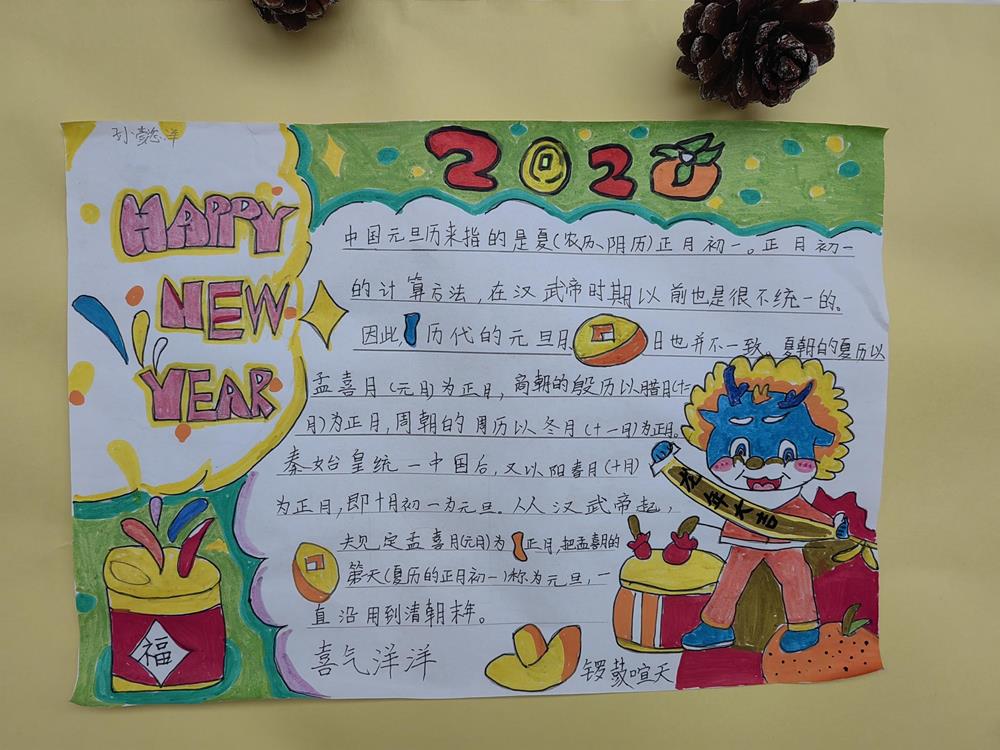 孙懿洋
HAPPY
NEW
YEAR
2020
中国元旦历来指的是夏(农历、阴历)正月初一。正月初一
的计算方法,在汉武帝时期以前也是很不统一的。
因此,历代的元旦月日也并不一致。夏朝的夏历以
孟喜月(元月)为正月,商朝的殷历以腊月(十二
月)为正月,周朝的周历以冬月(十一月)为正月。
秦始皇统一中国后,又以阳春月(十月)
为正月,即十月初一为元旦。从汉武帝起,
夫见定孟喜月(元月)为正月,把孟喜月的
第天(夏历的正月初一)称为元旦,一
直沿用到清朝末年。
喜气洋洋
锣鼓喧天
龙年大吉
福